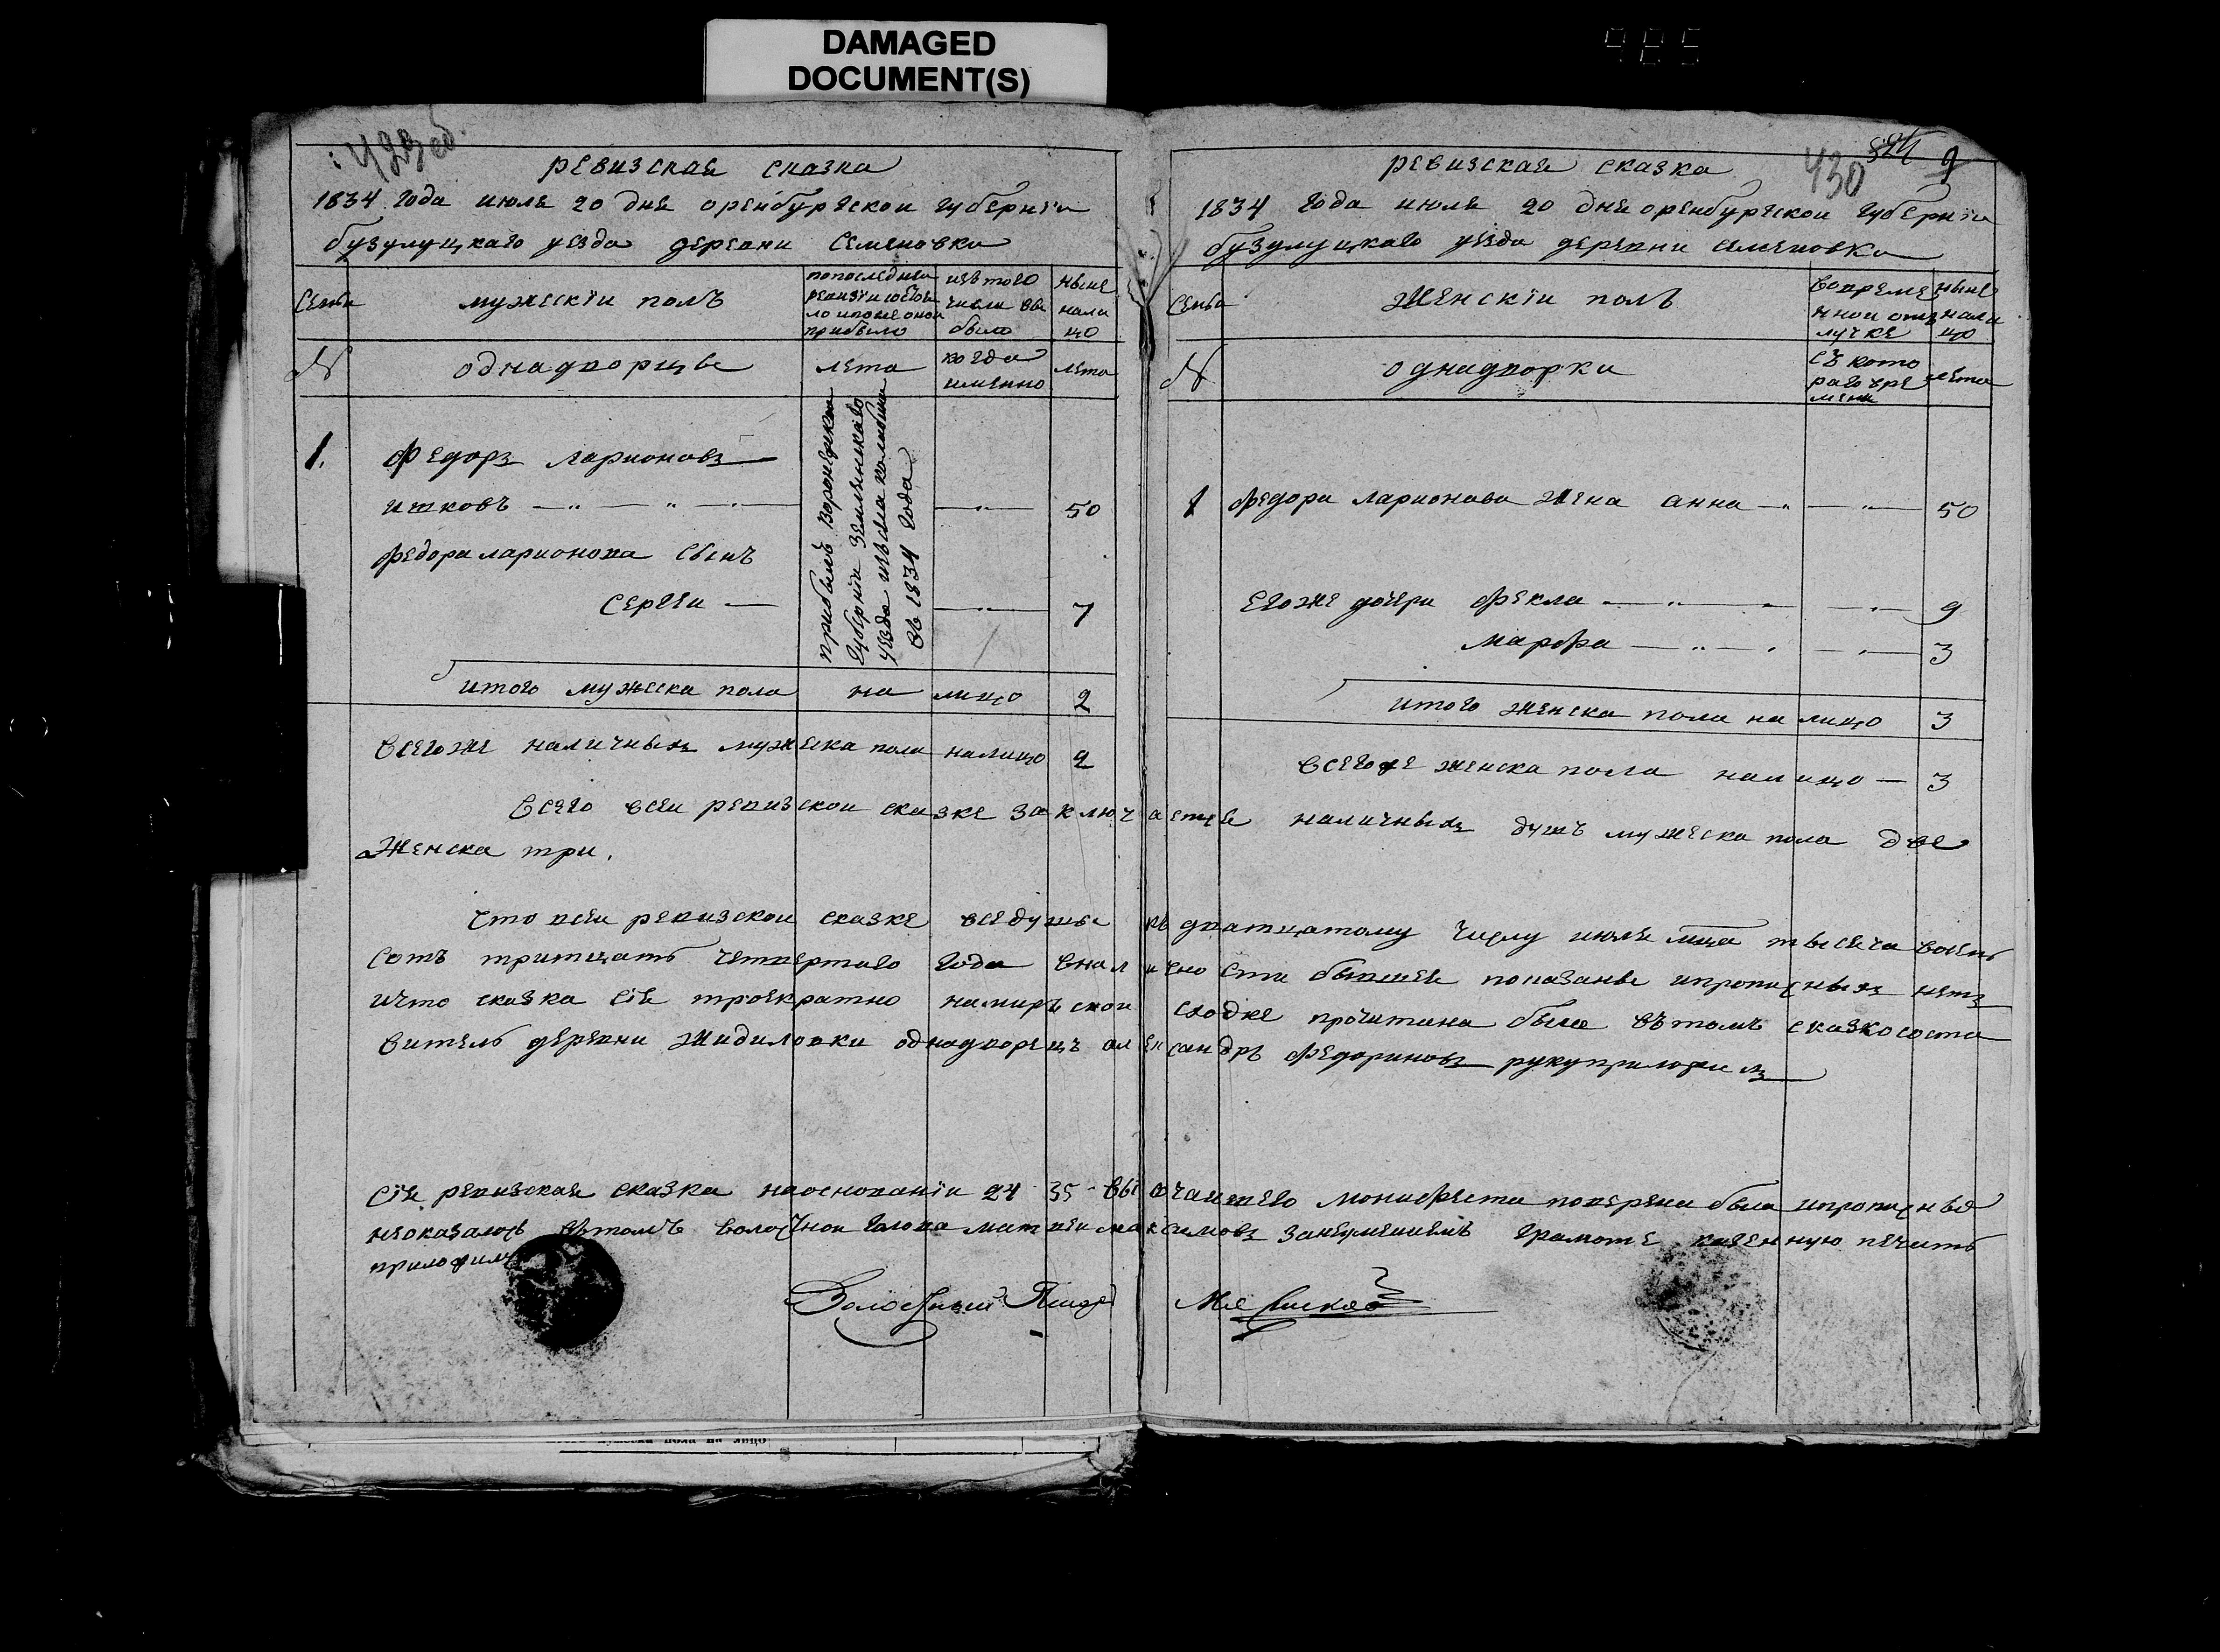 DAMAGED
DOCUMENT(S)
ревизская сказка
1834 года июля 20 дня оренбургскои губернїи
бузулуцкаго уезда деревни Семеновки
Семьи
мужескїи полъ
попоследнеи
ревизїи состоя
ло ипосле онои
прибыло
изъ того
числа вы
было
ныне
нали
цо
№
однадворцы
лета
когда
имянно
лета
1.
Федоръ Ларионовъ
прибылъ воронежскои
губернїи землянскаго
уезда изъ села колыбелки
въ 1834 года
50
Федора ларионова сынъ
Сергеи
7
итого мужеска пола на лицо 2
всегоже наличныхъ мужеска пола налицо 2
ревизская сказка
430
9
1834 года июля 20 дня оренбургскои губернїи
бузулуцкаго уезда деревни семеновки
Семьи
Женскїи полъ
вовреме
ннои отлу
лучке
ныне
нали
цо
№
однадворки
съ кото
раго вре
мени
лета
1 Федора ларионова жена анна 50
егоже дочери Фекла 9
марфа 3
итого женска пола на лицо 3
всегоже женска пола налицо 3
всего всеи ревизскои сказке заключаетца наличныхъ душъ мужеска пола две
Женска три.
что всеи ревизскои сказке все душы къ дватцатому числу июля мца тысеча восемь
сотъ тритцать четвертаго года вналичности бывшея показаны ипрописныхъ нетъ
ичто сказка сїя троекратно намирскои сходке прочитана была вътомъ сказкососта
витель деревни Жидиловки однадворецъ александръ Федориновъ руку приложилъ
сїя ревизская сказка наосновании 24 35 высочаишего монифеста поверена была ипрописные
неоказалось вътомъ волосчнои голова матвеи максимовъ занеумениемъ грамоте казенную печать
приложилъ
Волосчный Писарь